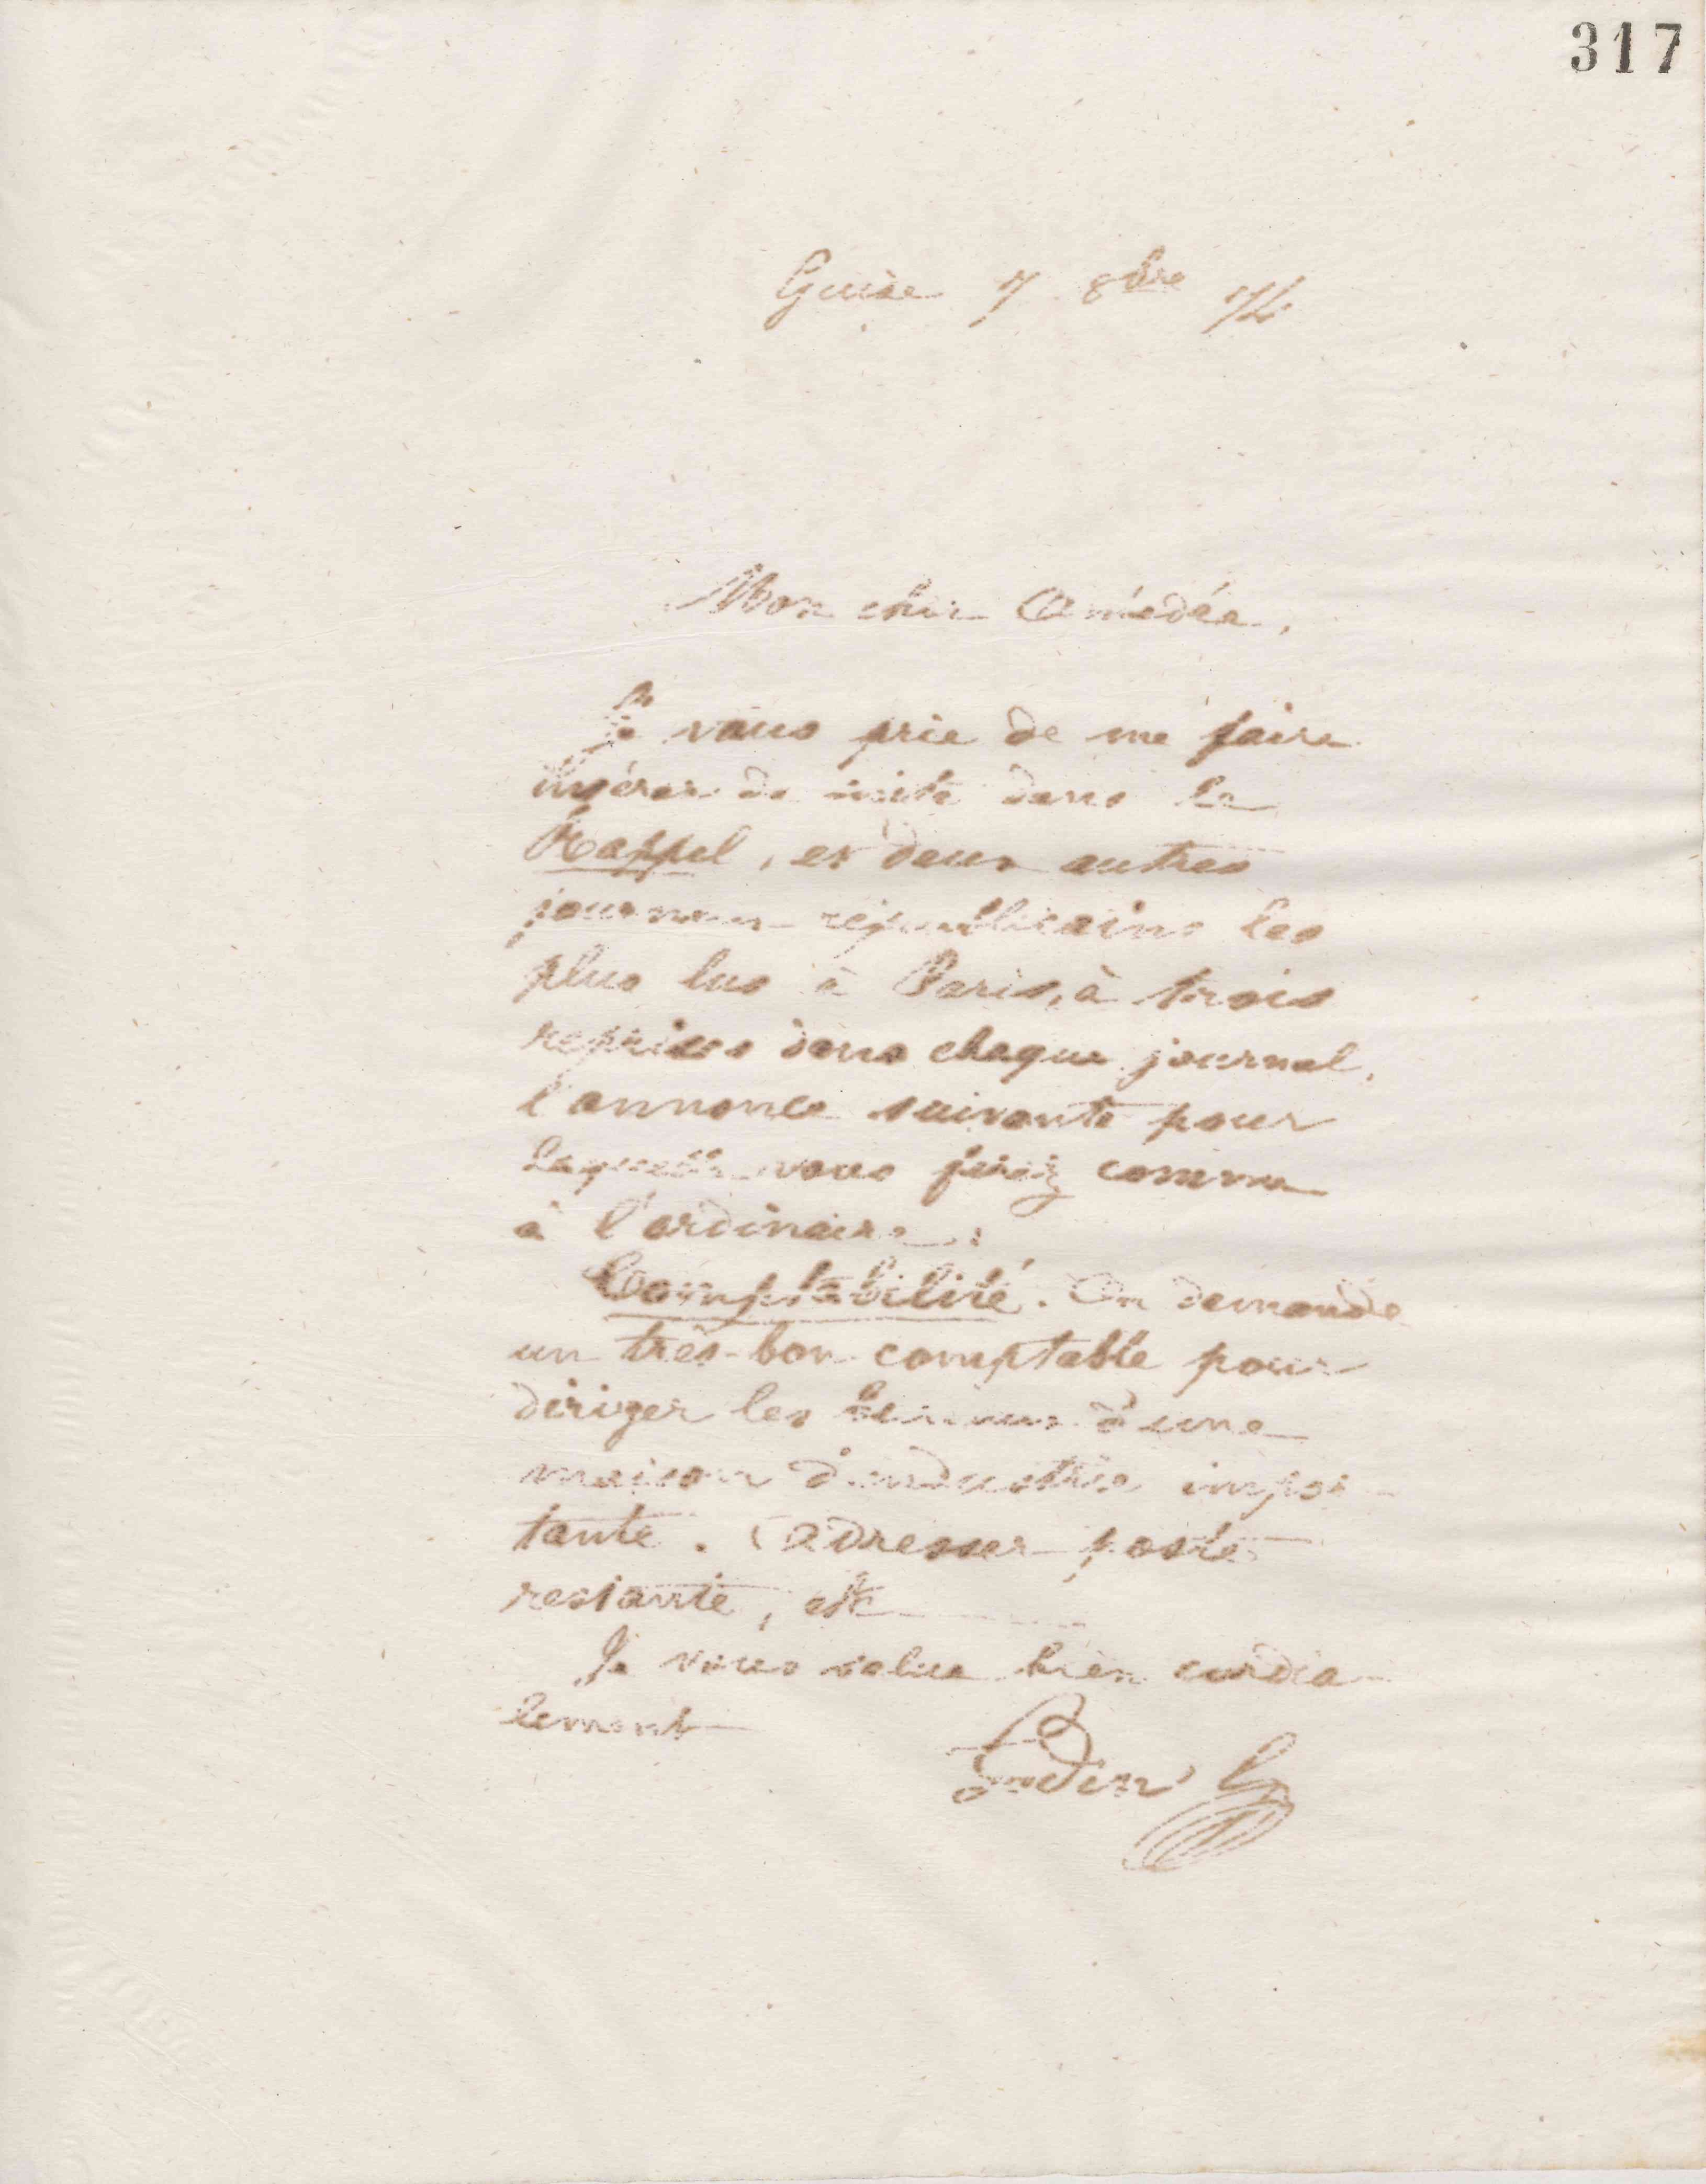 317
Guise 7 8bre 74
Mon cher Amédée,
Je vous prie de me faire
insérer de suite dans le
Rappel, et deux autres
journaux républicains les
plus lus à Paris, à trois
reprises dans chaque journal,
l'annonce suivante pour
laquelle vous ferez comme
à l'ordinaire :
Comptabilité. On demande
un très-bon comptable pour
diriger les bureaux d'une
maison d'industrie impor-
tante. Adresser poste
restante, etc
Je vous salue bien cordia-
lement
Godin